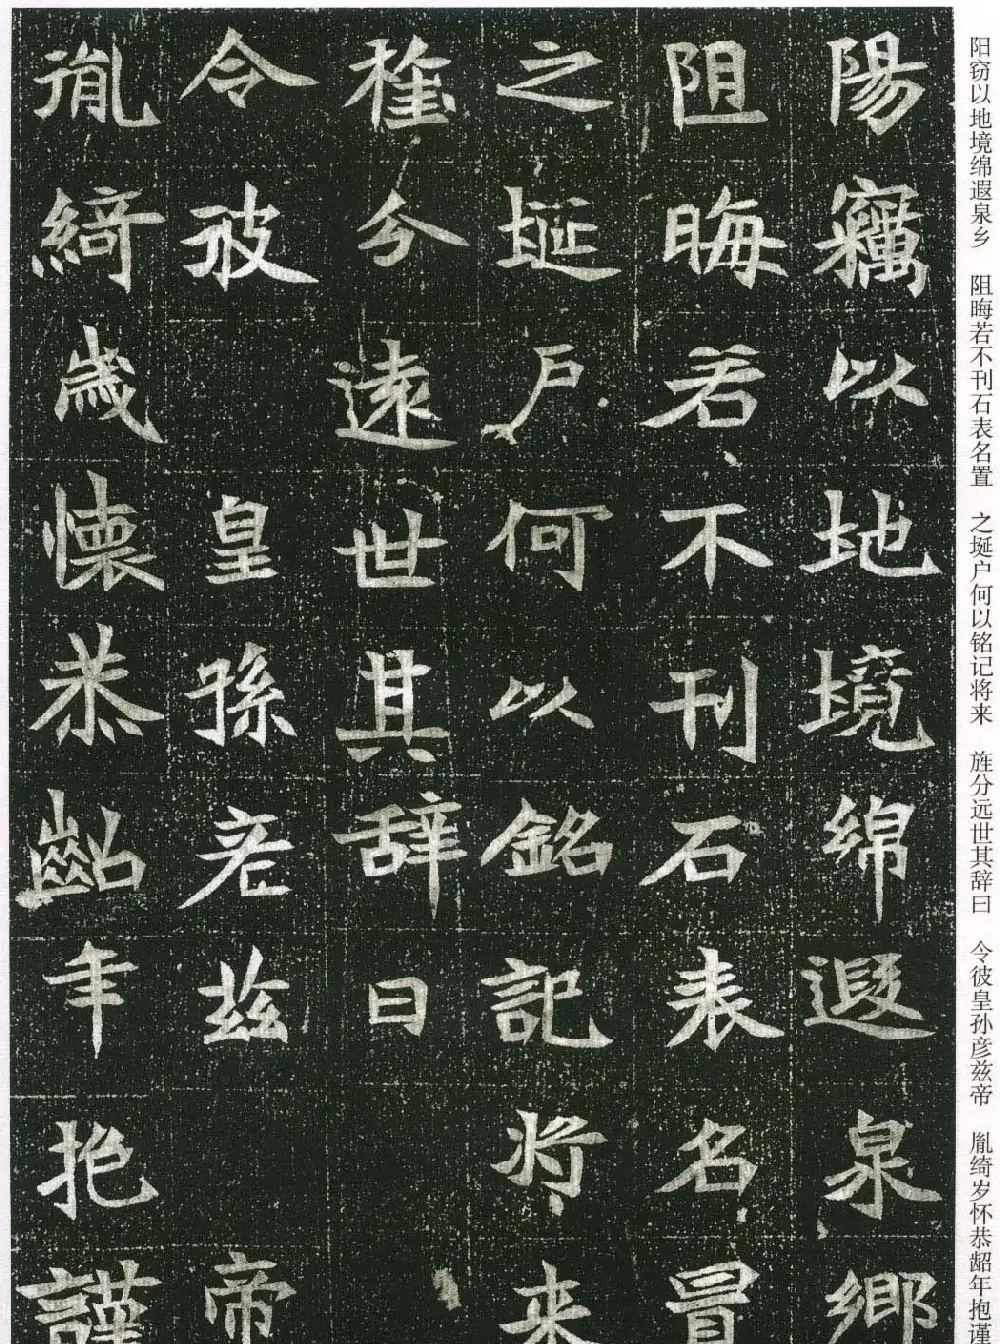 阳窃以地境绵遐泉乡 阻晦若不刊石表名置 之埏户何以铭记将来 旌分远世其辞曰 令彼皇孙彦兹帝 胤绮岁怀恭龆年抱谨
陽竊以地境綿遐泉鄉
阻晦若不刊石表名置
之埏户何以銘記将来
旌分遠世其辞曰
令彼 皇孫彦兹 帝
胤綺歲懷恭齠年抱謹